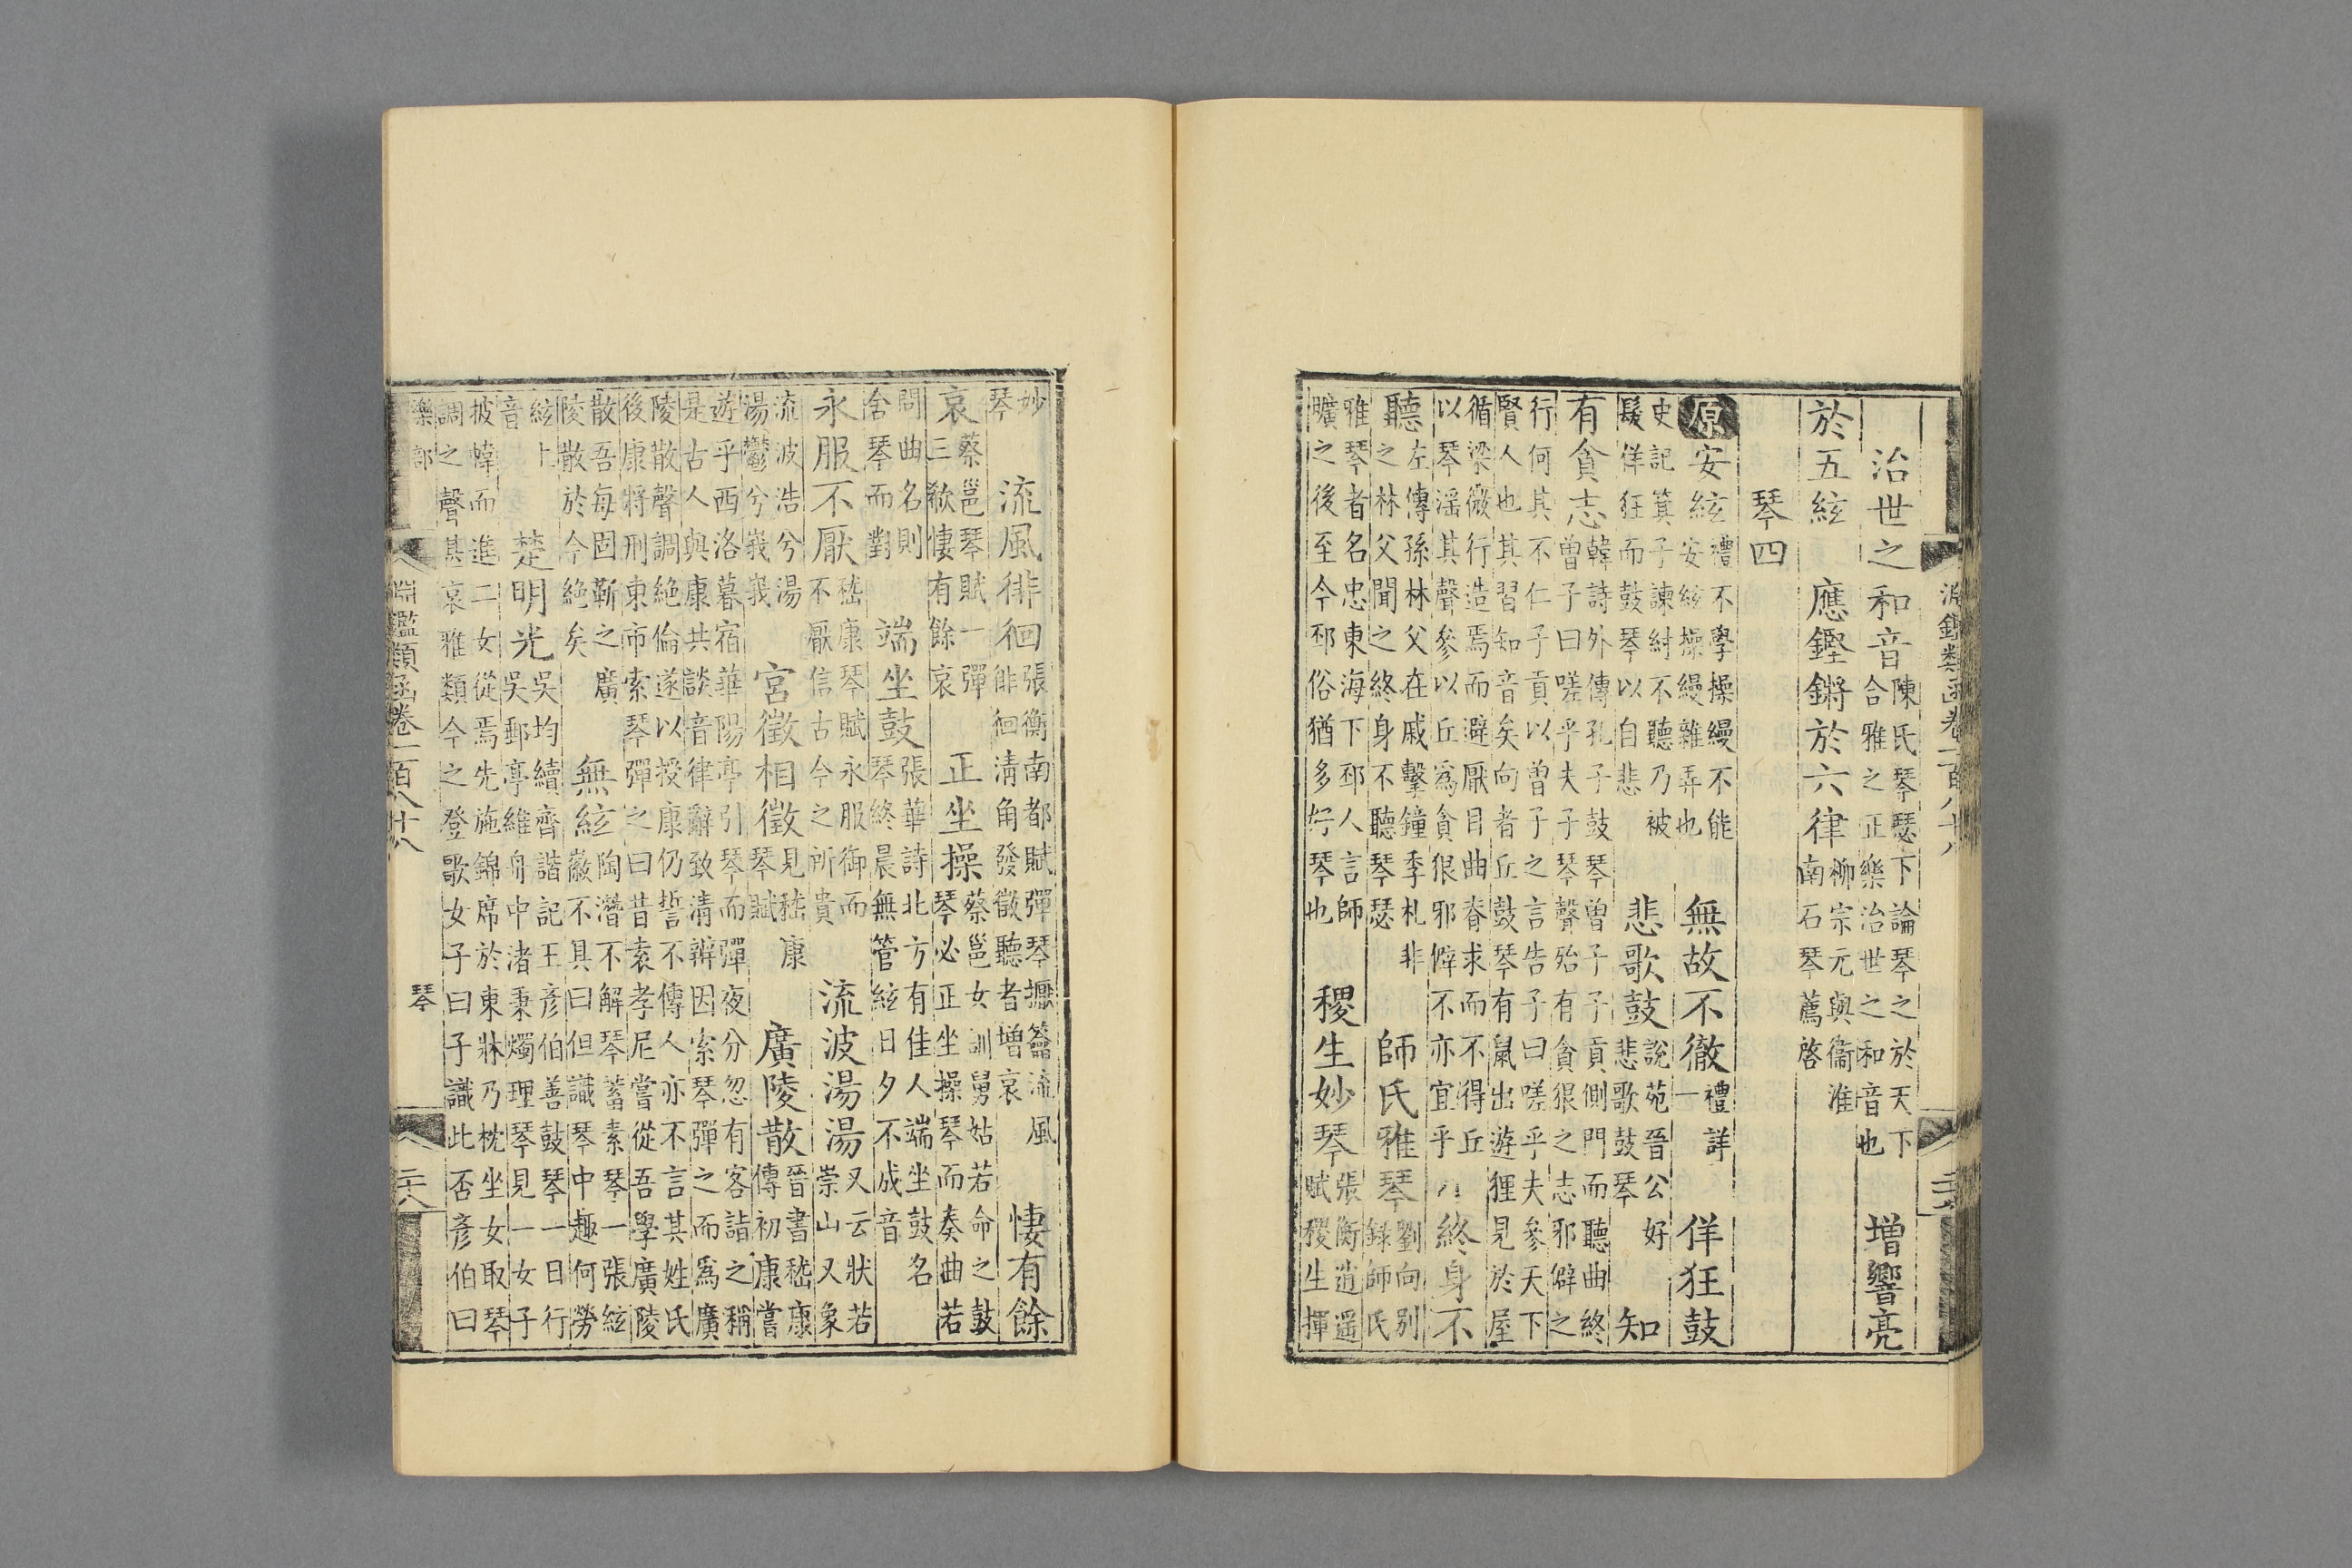 淵鑑類函卷一百八十八
治世之和音陳氏琴瑟下論琴之於天下合雅之正樂治世之和音也 增響亮
於五絃 應鏗鏘於六律柳宗元與衞淮南石琴薦啓
琴四
原安絃禮不學操縵不能安絃安絃操縵雜弄也 無故不徹禮詳一 佯狂鼓
史記箕子諫紂不聽乃被髮佯狂而鼓琴以自悲 悲歌鼓說苑晉公好悲歌鼓琴 知
有貪志韓詩外傳孔子鼓琴曾子子貢側門而聽曲終曾子曰嗟乎夫子琴聲殆有貪狠之志邪僻之
行何其不仁子貢以曾子之言告子曰嗟乎夫參天下賢人也其習知音矣向者丘鼓琴有鼠出遊狸見於屋
循梁微行造焉而避厭目曲脊求而不得丘以琴滛其聲參以丘爲貪狠邪僻不亦宜乎 終身不
聽左傳孫林父在戚擊鐘季札非之林父聞之終身不聽琴瑟 師氏雅琴劉向别錄師氏
雅琴者名忠東海下邳人言師曠之後至今邳俗猶多好琴也 稷生妙琴張衡逍遥賦稷生揮
妙琴 流風徘徊張衡南都賦彈琴擫籥流風徘徊清角發徵聽者增哀 悽有餘
哀蔡邕琴賦一彈三欷悽有餘哀 正坐操蔡邕女訓舅姑若命之鼓琴必正坐操琴而奏曲若
問曲名則舍琴而對 端坐鼓張華詩北方有佳人端坐鼓名琴終晨無管絃日夕不成音
永服不厭嵇康琴賦永服御而不厭信古今之所貴 流波湯湯又云狀若崇山又象
流波浩兮湯湯鬱兮峩峩 宮徵相徵見嵇康琴賦 廣陵散晉書嵇康傳初康嘗
遊乎西洛暮宿華陽亭引琴而彈夜分忽有客詣之稱是古人與康共談音律辭致清辨因索琴彈之而爲廣
陵散聲調絕倫遂以授康仍誓不傳人亦不言其姓氏後康將刑東市索琴彈之曰昔袁孝尼嘗從吾學廣陵
散吾每固靳之廣陵散於今絕矣 無絃陶潛不解琴蓄素琴一張絃徽不具曰但識琴中趣何勞
絃上音 楚明光吳均續齊諧記王彥伯善鼓琴一日行吳郵亭維舟中渚秉燭理琴見一女子
披幃而進二女從焉先施錦席於東牀乃枕坐女取琴調之聲甚哀雅類今之登歌女子曰子識此否彥伯曰
樂部 淵鑑類函卷一百八十八 琴 二十八